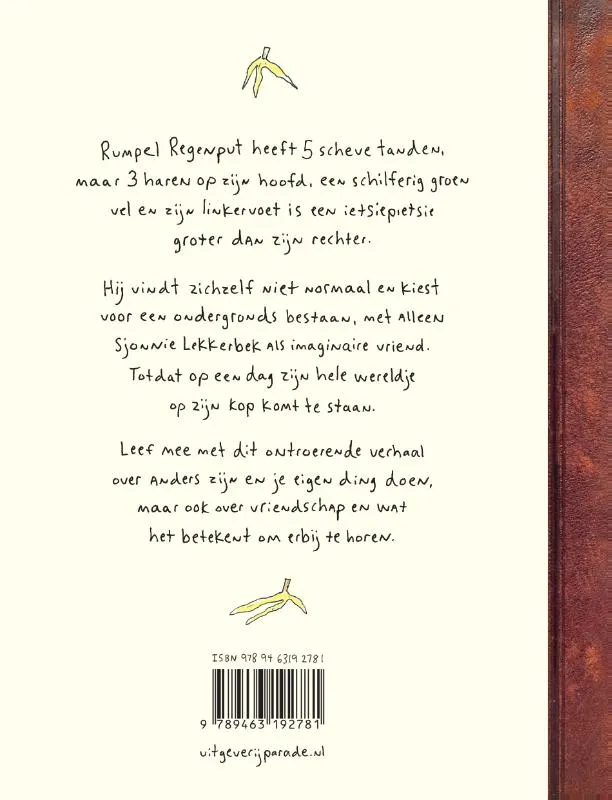 Rumpel Regenput heeft 5 scheve tanden,
maar 3 haren op zijn hoofd, een schilferig groen
vel en zijn linkervoet is een ietsiepietsie
groter dan zijn rechter.
Hij vindt zichzelf niet normaal en kiest
voor een ondergronds bestaan, met alleen
Sjonnie Lekkerbek als imaginaire vriend.
Totdat op een dag zijn hele wereldje
op zijn kop komt te staan.
Leef mee met dit ontroerende verhaal
over anders zijn en je eigen ding doen,
maar ook over vriendschap en wat
het betekent om erbij te horen.
ISBN 978 94 6319 2781
9 789463 192781
uitgeverijparade.nl